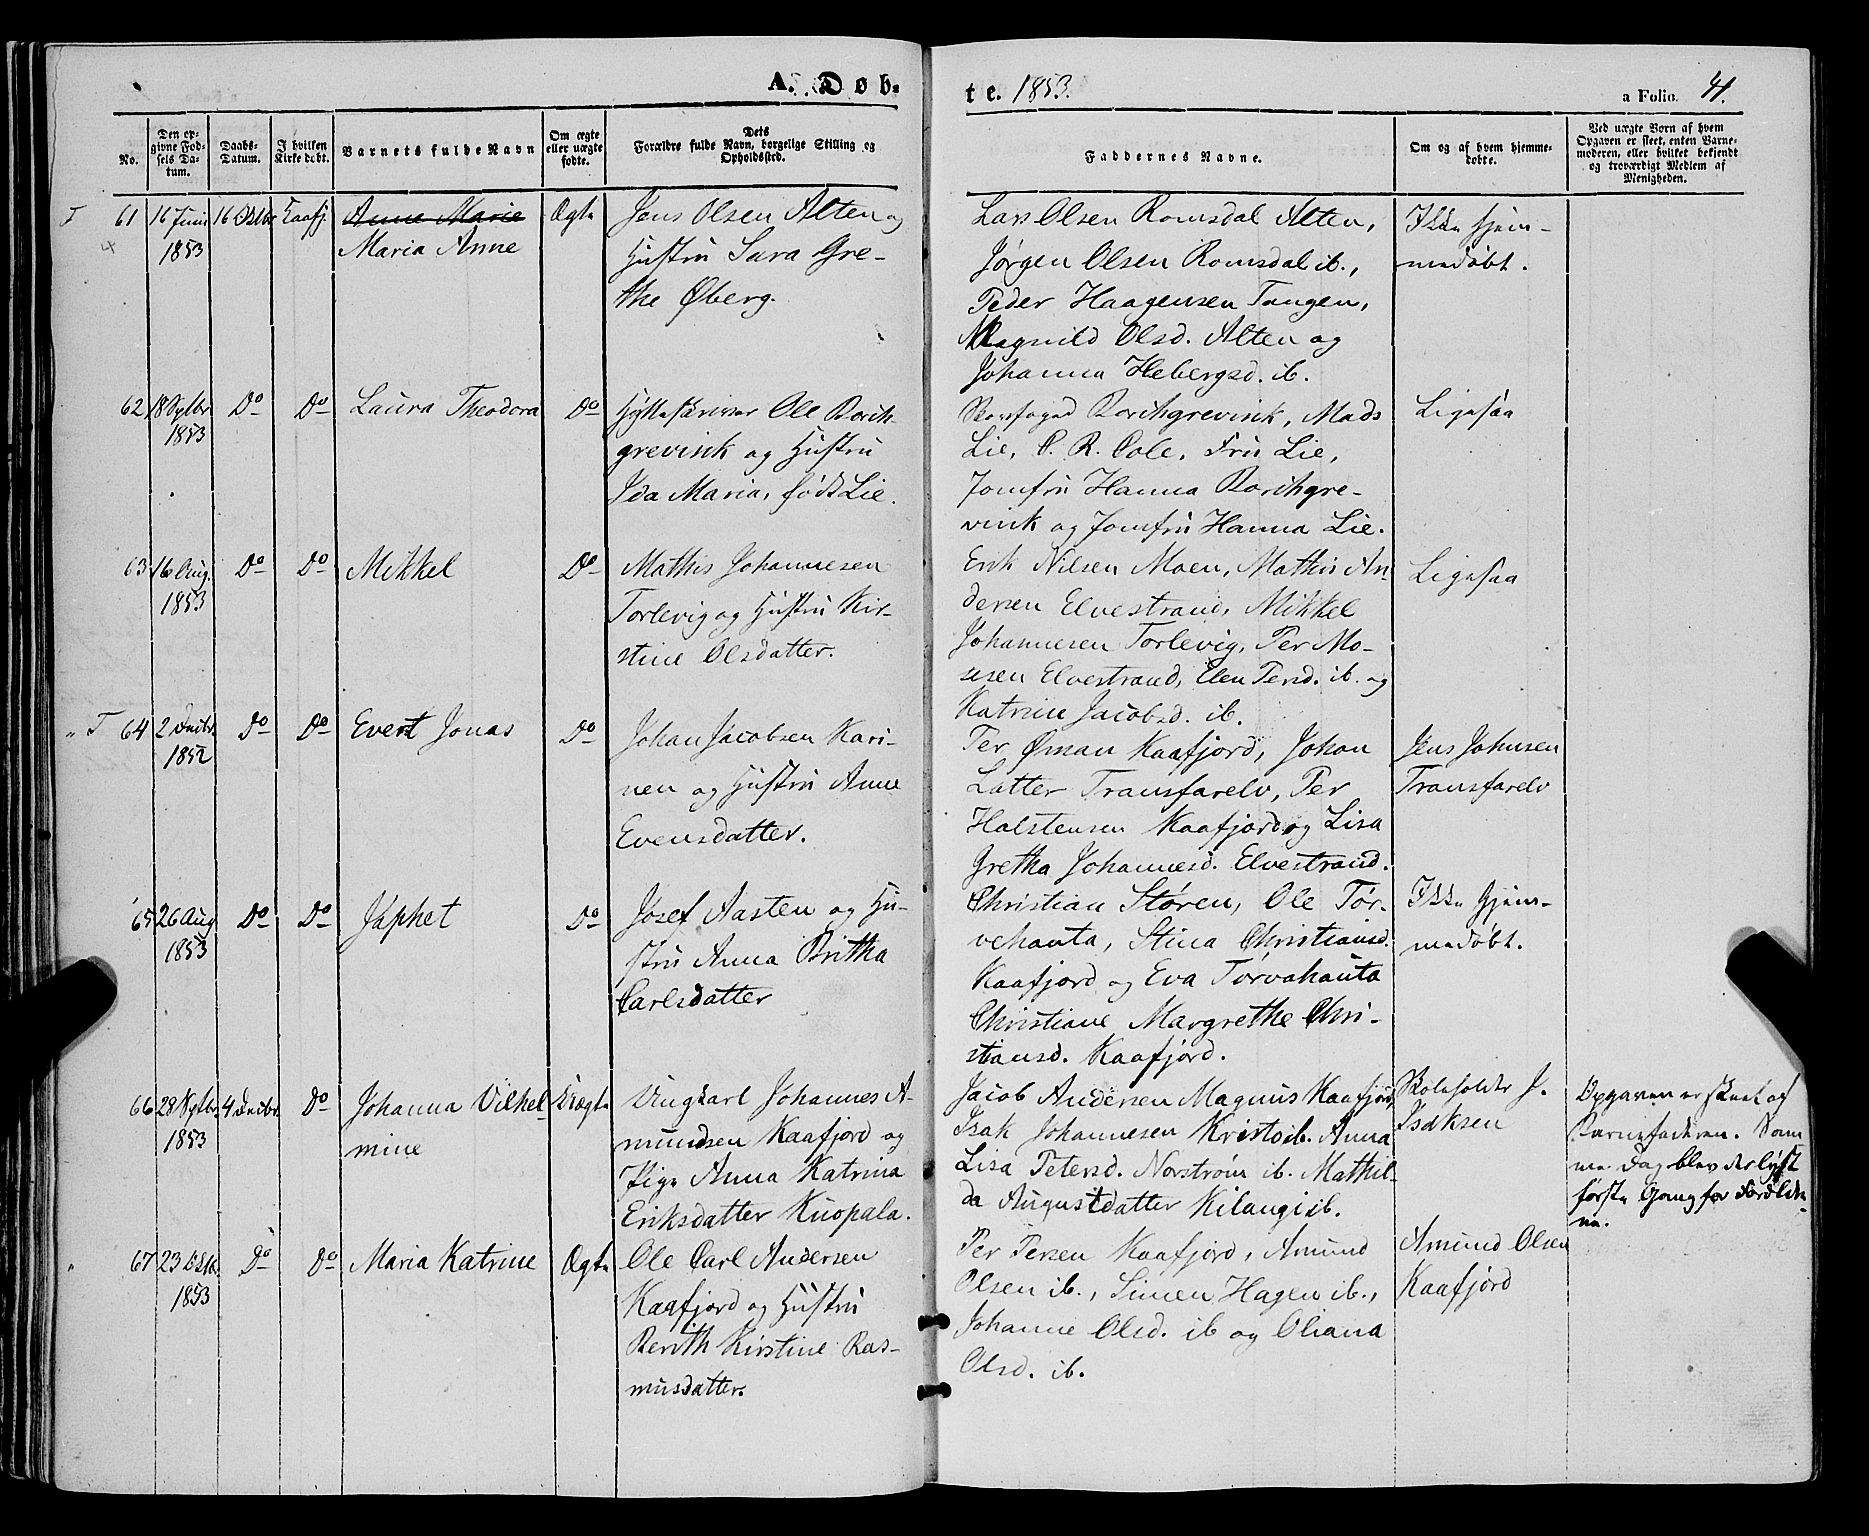 A. Døb-
te. 1853.
a Folio. 41.
No.
Den op-
givne Fød-
sels Da-
tum.
Daabs-
Datum.
I hvilken
Kirke døbt.
Barnets fulde Navn
Om ægte
eller uægte
fødte.
Dets
Forældre fulde Navn, borgelige Stilling og
Opholdssted.
Faddernes Navne.
Om og af hvem hjemme-
døbte.
Ved uægte Børn af hvem
Opgaven er skeet, enten Barne-
moderen, eller hvilket bekjendt
og troværdigt Medlem af
Menigheden.
T 61 16 Juni
1853
16 Oktbr
Kaafj.
Anne Marie
Maria Anne
Ægte
Jens Olsen Alten og
Hustru Sara Gre-
the Øberg.
Lars Olsen Romsdal Alten,
Jørgen Olsen Romsdal ib.,
Peder Haagensen Tangen,
Magnild Olsd. Alten og
Johanna Hebergsd. ib.
Ikke hjem-
medøbt.
62 18 Sptbr
1853
Do
Do
Laura Theodora
Do
Hytteskriver Ole Borch-
grevink og Hustru
Ida Maria, født Lie.
Skovfoged Borchgrevink, Mads
Lie, C. R. Cole, Fru Lie,
Jomfru Hanna Borchgre-
vink og Jomfru Hanna Lie.
Ligesaa
63 16 Aug.
1853
Do
Do
Mikkel
Do
Mathis Johannesen
Torlevig og Hustru Kir-
stine Olsdatter.
Erik Nilsen Moen, Mathis An-
dersen Elvestrand, Mikkel
Johannesen Torlevig, Per Mo-
sesen Elvestrand, Elen Persd. ib. og
Katrine Jacobsd. ib.
Ligesaa
T 64 2
1852
Do
Do
Evert Jonas
Do
Johan Jacobsen Kari-
nen og Hustru Anne
Evensdatter.
Per Øman Kaafjord, Johan
Latter Transfarelv, Per
Halstensen Kaafjord og Lisa
Gretha Johannesd. Elvestrand.
Jens Johnsen
Transfarelv
65 26 Aug
1853
Do
Do
Japhet
Do
Josef Aasten og Hu-
stru Anna Britha
Carlsdatter
Christian Støren, Ole Tør-
vehauta, Stina Christiansd.
Kaafjord og Eva Tørvahauta
Christiane Margrethe Chri-
stiansd. Kaafjord.
Ikke hjem-
medøbt.
66 28 Sptbr
1853
4
Do
Johanna Vilhel-
mine
Uægte
Ungkarl Johannes A-
mundsen Kaafjord og
Pige Anna Katrina
Eriksdatter Kuopala.
Jacob Andersen Magnus Kaafjord,
Isak Johannesen Kristo ib. Anna
Lisa Petersd. Norstrøm ib. Mathil-
da Augustdatter Kilangi ib.
Skoleholder J.
Isaksen
Opgaven er skeet af
Barnefaderen. Sam-
me Dag blev der lyst
første Gang for Forældre-
ne.
67 23 Oktbr.
1853
Do
Do
Maria Katrine
Ægte
Ole Carl Andersen
Kaafjord og Hustru
Berith Kirstine Ras-
musdatter.
Per Persen Kaafjord, Amund
Olsen ib., Simen Hagen ib.,
Johanne Olsd. ib og Oliana
Olsd. ib.
Amund Olsen
Kaafjord